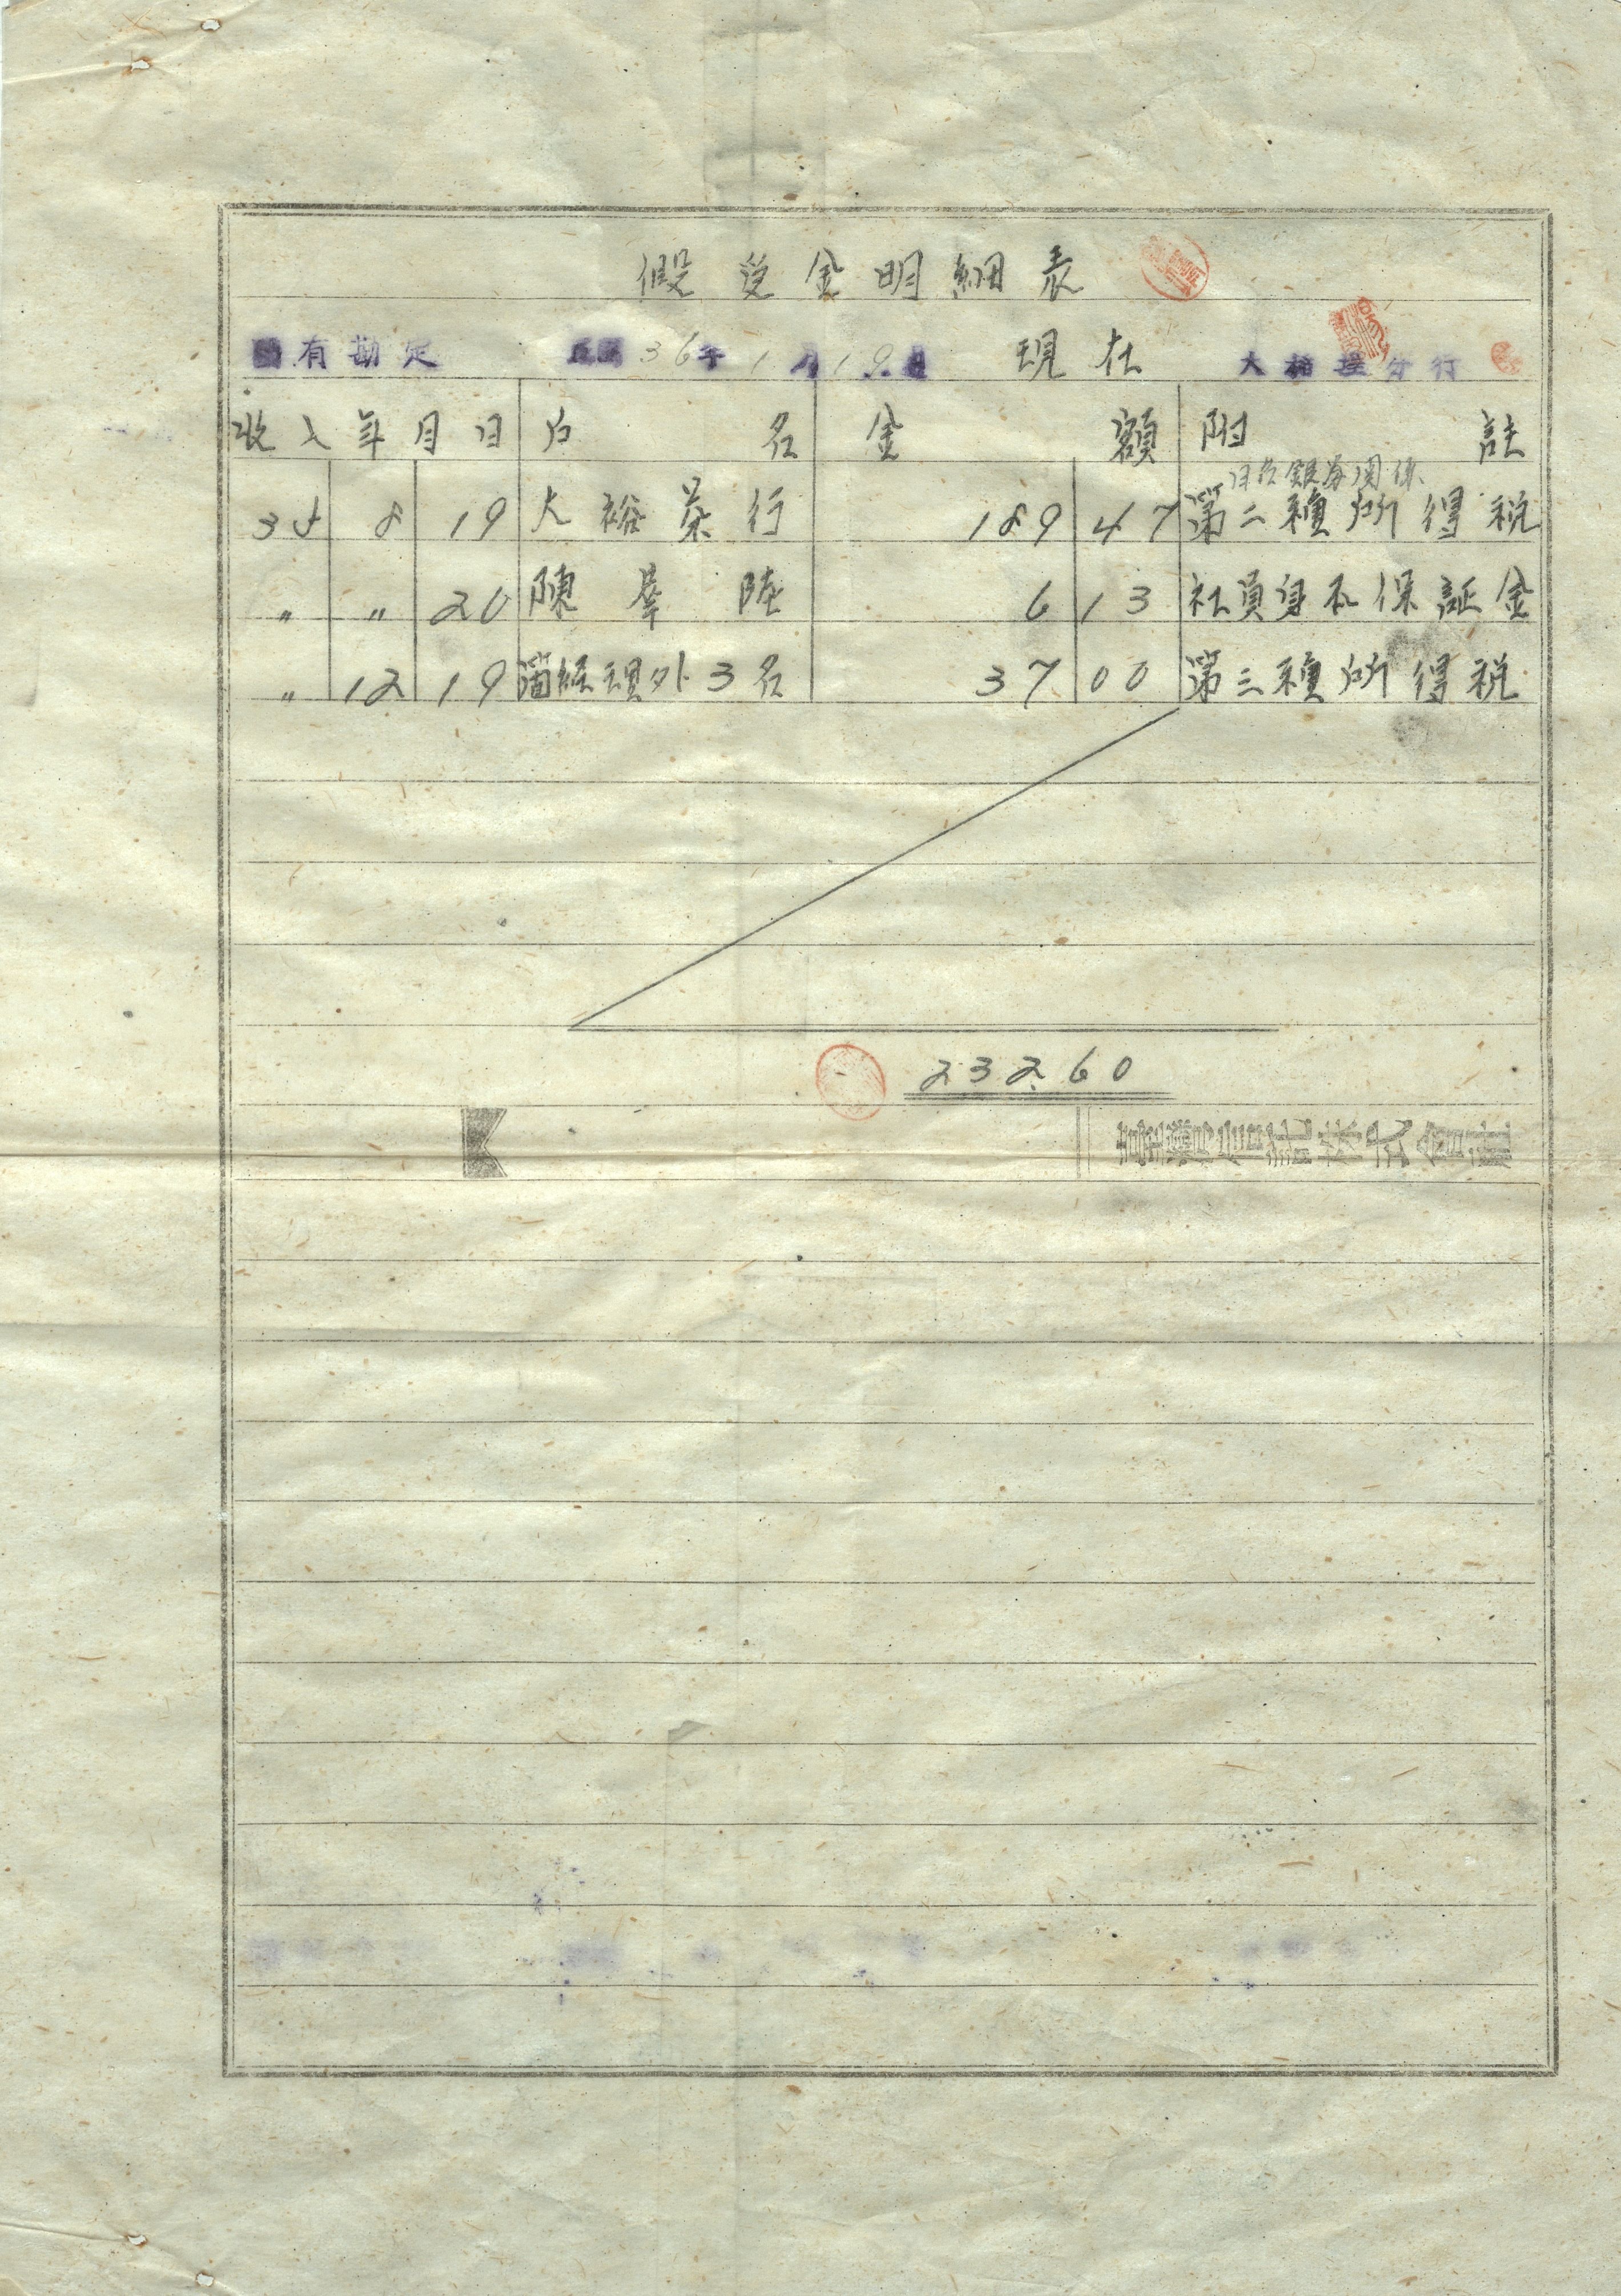 假受金明細表
固有勘定 民國36年1月19日 現在 大稻埕分行
收入年月日 戶名 金額 附註
35 8 19 大裕茶行 189 47 第二種所得稅
〃 〃 20 陳 陸 6 13 社員身元保証金
〃 12 19 經理外3名 37 00 第三種所得稅
232.60
臺灣信託株式會社